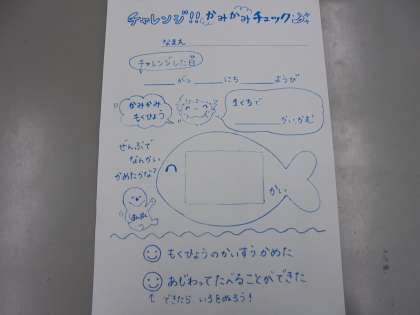 チャレンジ!! かみかみチェック
なまえ
チャレンジした日
がつ にち ようび
かみかみ
もくひょう
まくちで
かいかむ
ぜんぶで
なんかい
かめたかな?
かい
もくひょうのかいすうかめた
あじわってたべることができた
↑ できたら いろをぬろう!